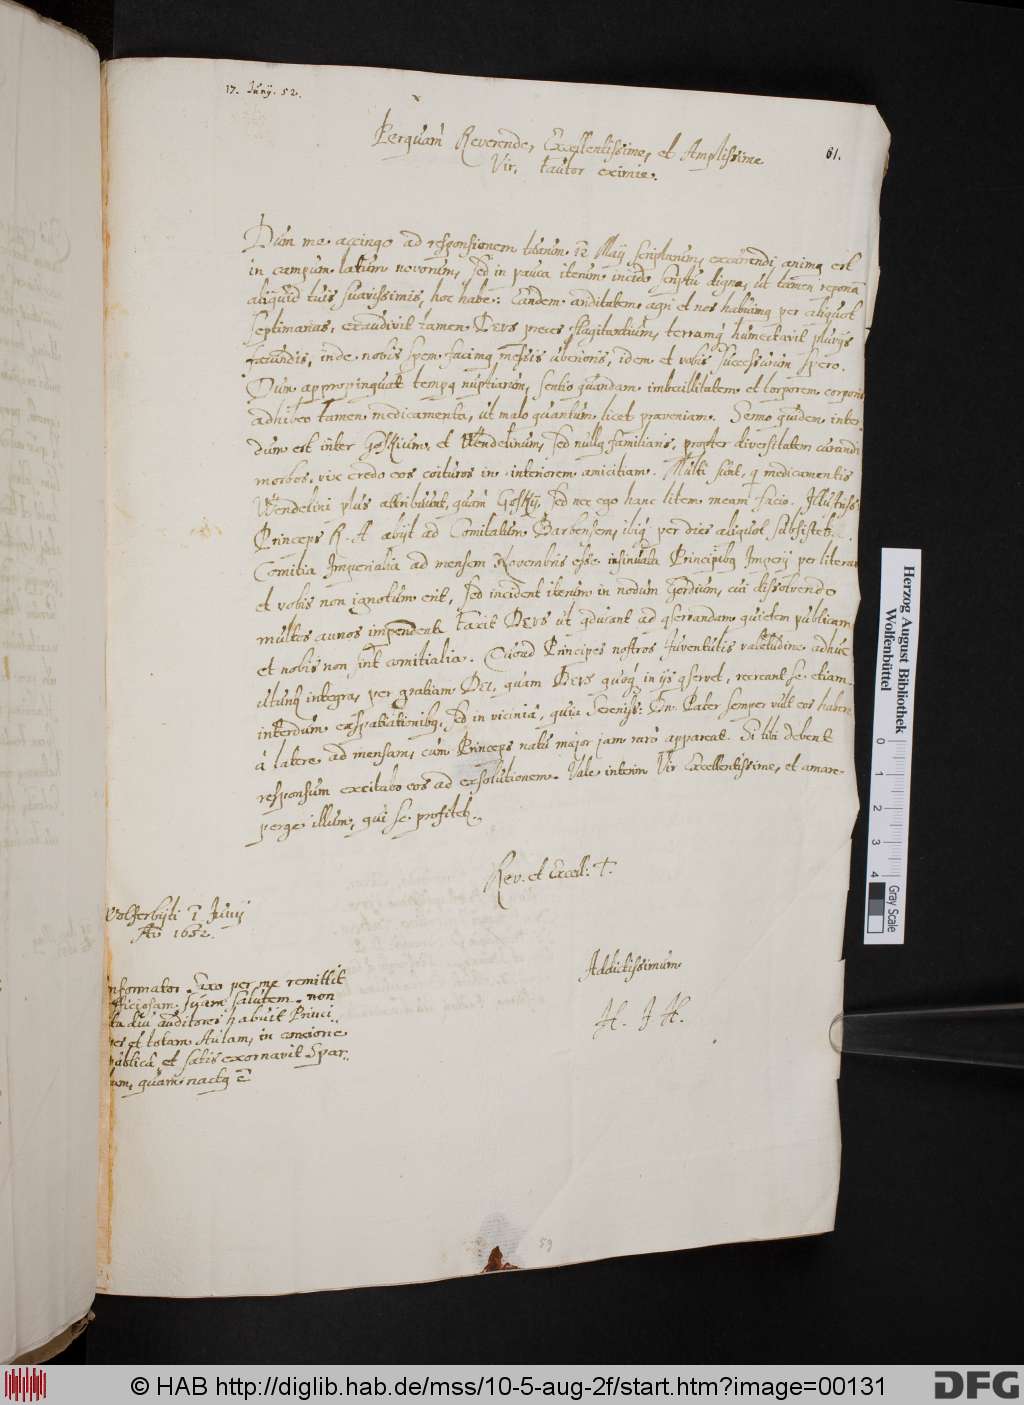 17. Junij. 52.
61.
Perquam Reverende, Excellentissime, et Amplissime
Vir, fautor eximie.
Dum me accingo ad responsionem tuarum 12 Maij scriptarum, excurrendi animq est
in campum latum novorum, sed in pauca iterum incido scriptu digna, ut tamen reponā
aliquid tuis suavissimis, hoc habe: Eandem ariditatem agri et nos habuimq per aliquot
septimanas, exaudivit tamen DEVS preces flagitantium, terramq humectavit pluvijs
fœcundis, inde nobis spem facimq messis uberioris, idem et vobis successurum spero.
Dum appropinquat tempq nuptiarum, sentio quandam imbecillitatem et torporem corporis
adhibeo tamen medicamenta, ut malo quantum licet præveniam. Sermo quidem inter-
dum est inter Goskium et Wendelinum, sed nullq familiaris, propter diversitatem curandi
morbos, vix credo eos coituros in interiorem amicitiam. Multi sunt, q medicamentis
Wendelini plus attribuunt, quam Goskij, sed nec ego hanc litem meam facio. Illustriss:
Princeps R. A abijt ad Comitatum Barbensem, ibiq per dies aliquot subsistet.
Comitia Imperialia ad mensem Novembris esse insinuata Principibq Imperij per literas
et vobis non ignotum erit, sed incident iterum in nodum Gordium, cui dissolvendo
multos annos impendent. Faxit DEVS ut qducant ad qservandam quietem publicam
et nobis non sint comitialia. Quoad Principes nostros Juventutis valetudine adhuc
utunq integra, per gratiam DEI, quam DEVS quoq in ijs qservet, recreant se etiam
interdum exspatiationibq, sed in vicinia, quia Sereniss: Dn. Pater semper vult eos habere
à latere ad mensam, cum Princeps natu major jam raro appareat. Si tibi debent
responsum excitabo eos ad exsolutionem. Vale interim Vir Excellentissime, et amare
perge illum, qui se profitet.
Rev. et Excell: T.
Wolferbyti 1 Junij
Aō 1652.
Addictissimum
H. J H.
Informator Saxo per me remittit
officiosam suam salutem. non
ita diu auditores habuit Princi
pes et totam Aulam, in concione
publica et satis exornavit Spar-
tam, quam nactq ē
59
Herzog August Bibliothek
Wolfenbüttel
0 1 2 3 4
Gray Scale
© HAB http://diglib.hab.de/mss/10-5-aug-2f/start.htm?image=00131
DFG